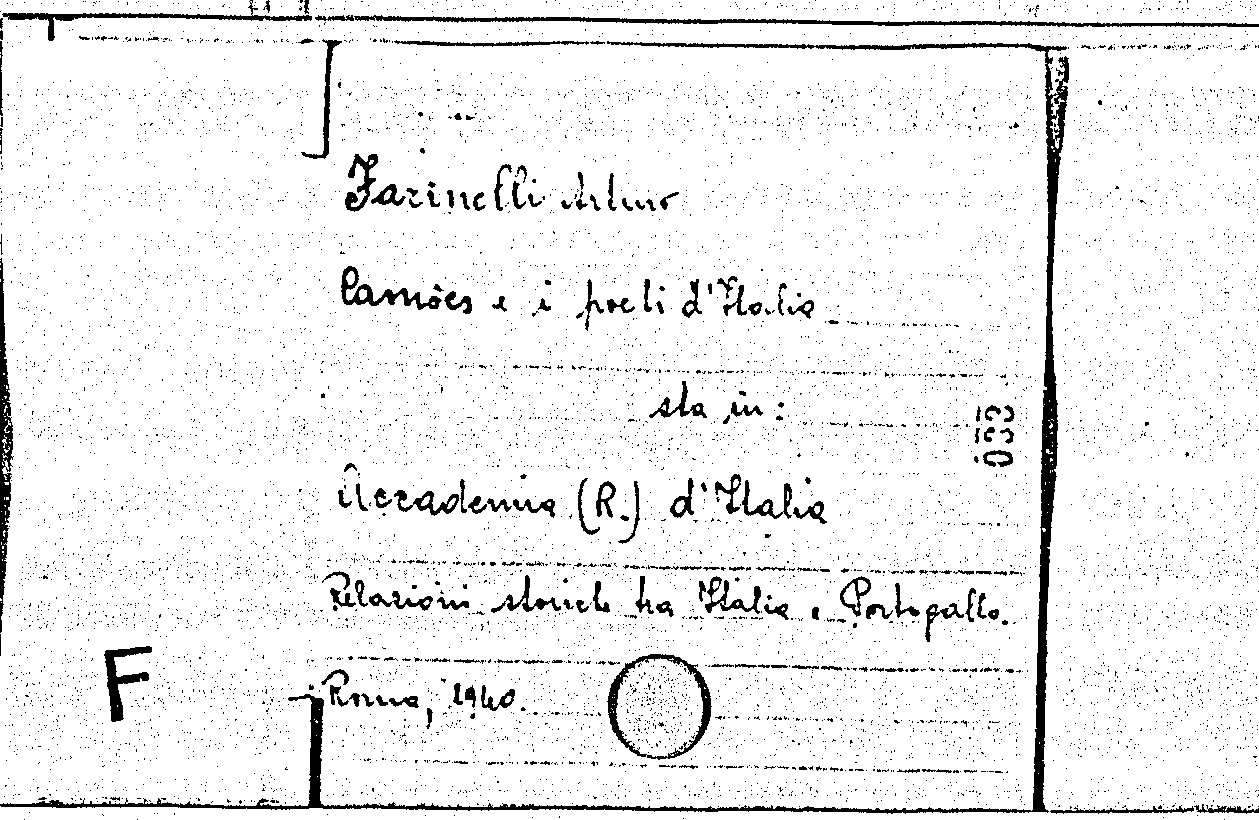 Farinelli Arturo
Camões e i poeti d'Italia
sta in:
Accademia (R.) d'Italia
Relazioni storiche tra Italia e Portogallo.
Roma, 1940.
F